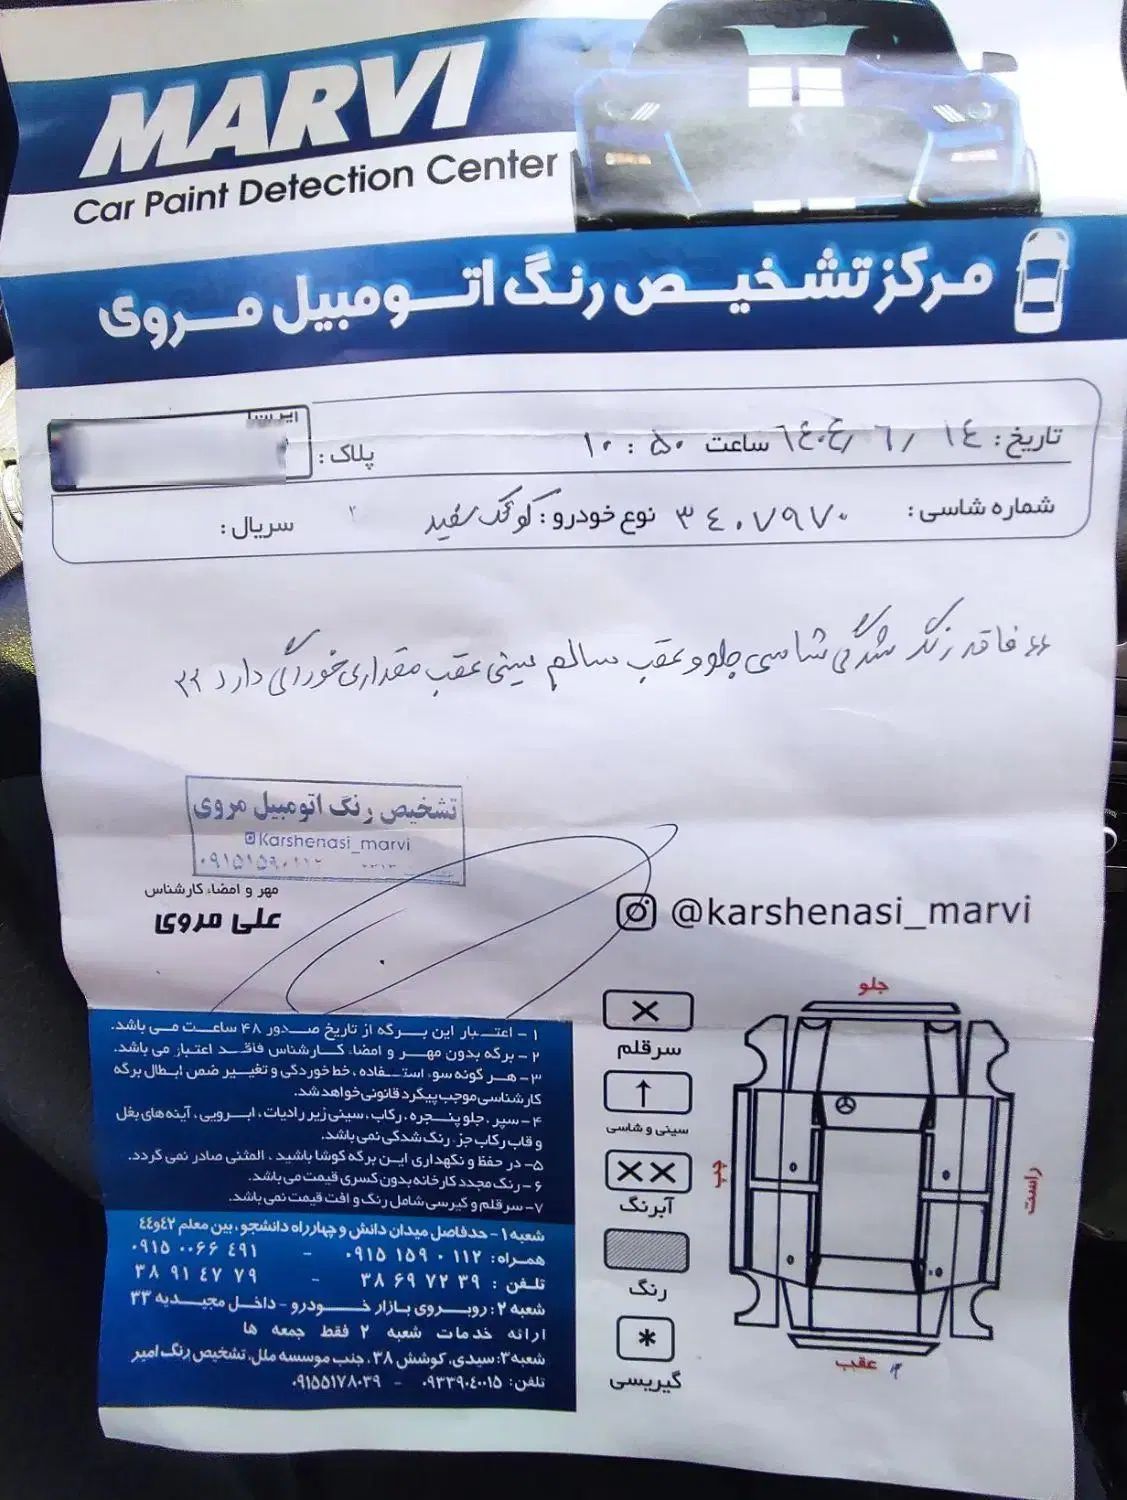 MARVI
Car Paint Detection Center
مرکز تشخیص رنگ اتومبیل مروی
تاریخ: ۱٤ / ٦ / ۱٤۰٤ ساعت ۱۰:۵۰ پلاک:
شماره شاسی: ۳٤۰۷۹۷۰ نوع خودرو: کوئیک سفید سریال:
فاقد رنگ شدگی شاسی جلو و عقب سالم سینی عقب مقداری خوردگی دارد
تشخیص رنگ اتومبیل مروی
Karshenasi_marvi
مهر و امضاء کارشناس
علی مروی
@karshenasi_marvi
۱- اعتبار این برگه از تاریخ صدور ۴۸ ساعت می باشد.
۲- برگه بدون مهر و امضاء کارشناس فاقد اعتبار می باشد.
۳- هر گونه سوء استفاده، خط خوردگی و تغییر ضمن ابطال برگه
کارشناسی موجب پیگرد قانونی خواهد شد.
۴- سپر، جلو پنجره، رکاب، سینی زیر رادیات، ابرویی، آینه های بغل
و قاب رکاب جزء رنگ شدگی نمی باشد.
۵- در حفظ و نگهداری این برگه کوشا باشید، المثنی صادر نمی گردد.
۶- رنگ مجدد کارخانه بدون کسری قیمت می باشد.
۷- سرقلم و گیرسی شامل رنگ و افت قیمت نمی باشد.
شعبه ۱- حدفاصل میدان دانش و چهارراه دانشجو، بین معلم ۴۲و۴۴
همراه: ۰۹۱۵ ۱۵۹ ۰ ۱۱۲ - ۰۹۱۵ ۰۰۶۶ ۴۹۱
تلفن: ۳۸ ۶۹ ۷۲ ۳۹ - ۳۸ ۹۱ ۴۷ ۷۹
شعبه ۲: روبروی بازار خودرو - داخل مجیدیه ۳۳
ارائه خدمات شعبه ۲ فقط جمعه ها
شعبه ۳: سیدی، کوشش ۳۸، جنب موسسه ملل، تشخیص رنگ امیر
تلفن: ۰۹۳۳۹۰۴۰۰۱۵ - ۰۹۱۵۵۱۷۸۰۳۹
سرقلم
سینی و شاسی
آبرنگ
رنگ
گیریسی
جلو
چپ
راست
عقب